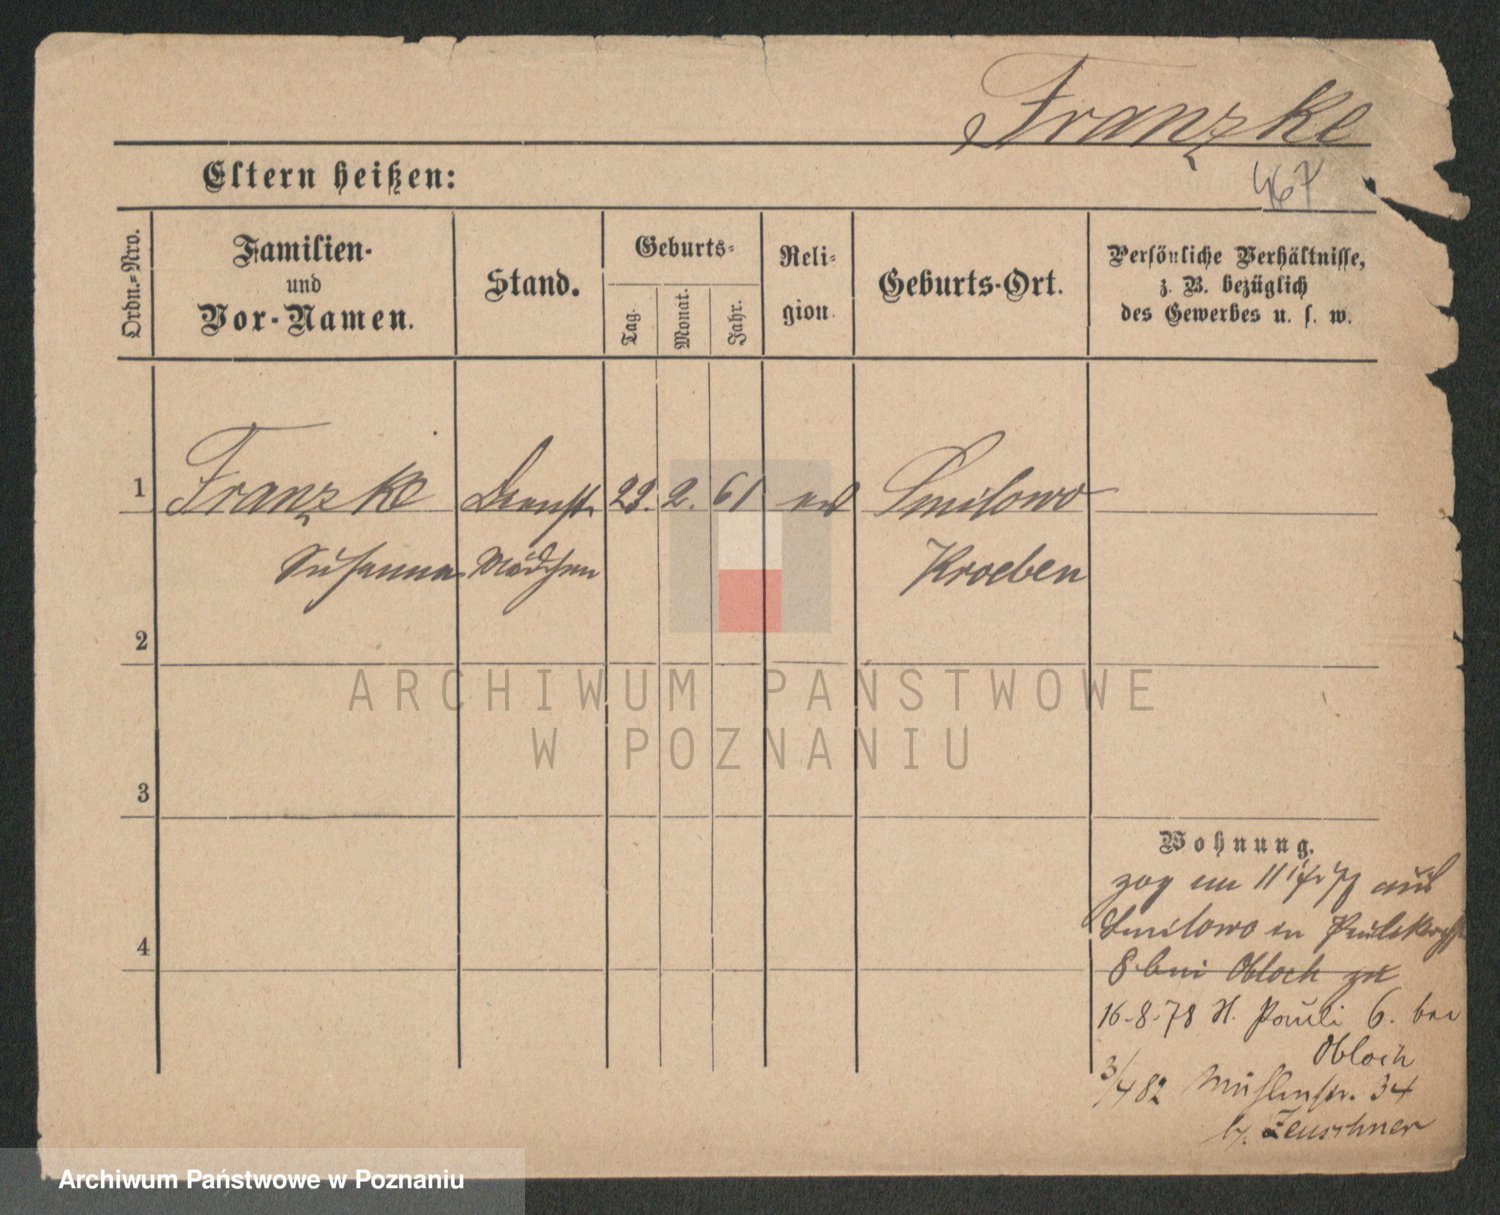 Franzke
467
Eltern heißen:
Ordn.-Nro.
Familien-
und
Vor-Namen.
Stand.
Geburts-
Tag.
Monat.
Jahr.
Reli-
gion.
Geburts-Ort.
Persönliche Verhältnisse,
z. B. bezüglich
des Gewerbes u. s. w.
1 Franzke Dienst- 22. 2. 61 Smilowo
Susanna Mädchen Kroeben
2
ARCHIWUM PAŃSTWOWE
W POZNANIU
3
Wohnung.
zog am 11 aus
Smilowo in
4
8 bei Obloch
16-8-78 H. Pauli 6. bei
Obloch
3/4 82 Mühlenstr. 34
b/. Zeuschner
Archiwum Państwowe w Poznaniu